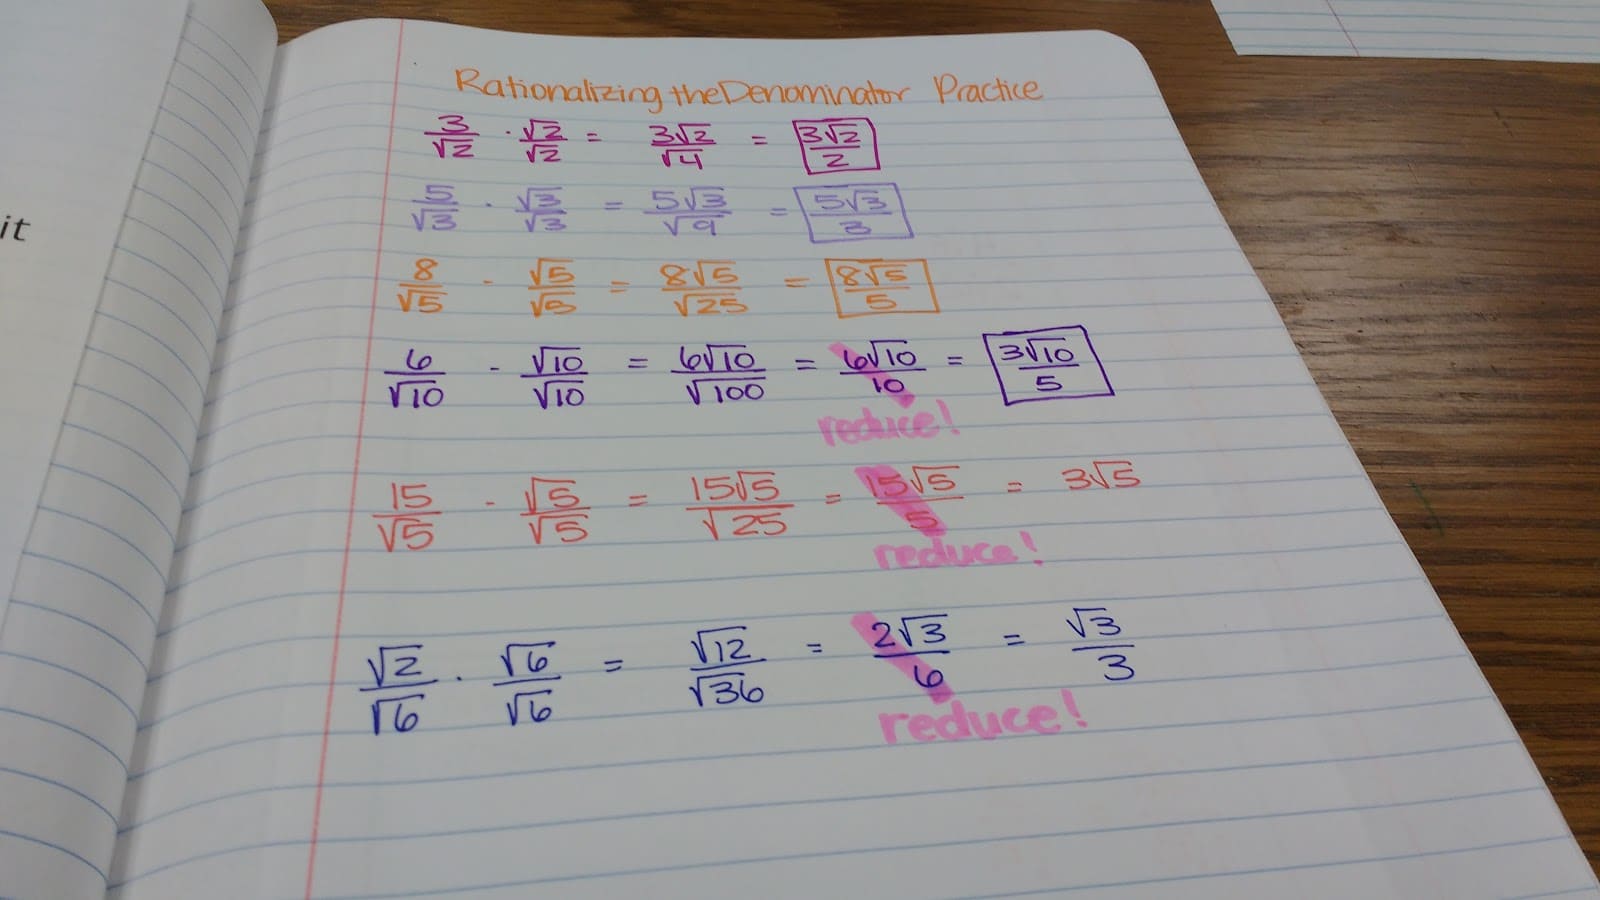 Rationalizing the Denominator Practice
3/√2 · √2/√2 = 3√2/√4 = 3√2/2
it
5/√3 · √3/√3 = 5√3/√9 = 5√3/3
8/√5 - √5/√5 = 8√5/√25 = 8√5/5
6/√10 - √10/√10 = 6√10/√100 = 6√10/10 = 3√10/5
reduce!
15/√5 - √5/√5 = 15√5/√25 = 15√5/5 = 3√5
reduce!
√2/√6 · √6/√6 = √12/√36 = 2√3/6 = √3/3
reduce!